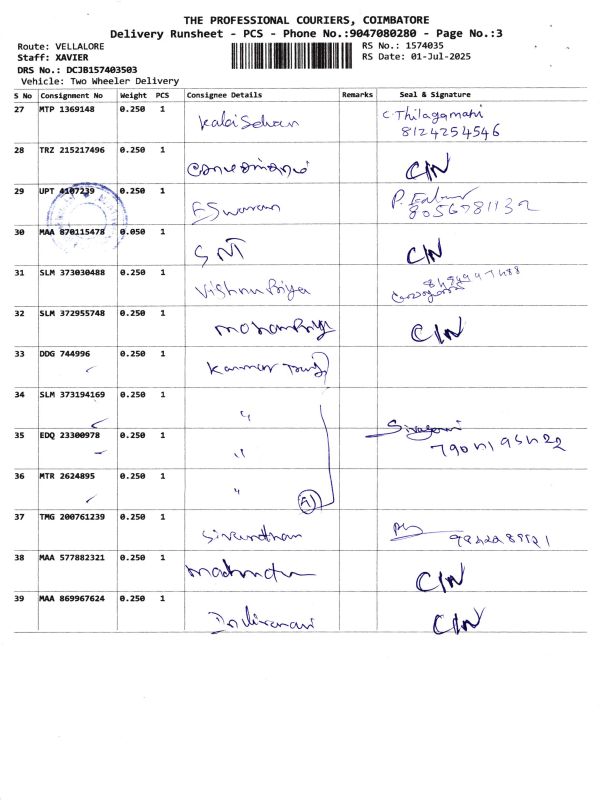 THE PROFESSIONAL COURIERS, COIMBATORE
Delivery Runsheet - PCS - Phone No.:9047080280 - Page No.:3
Route: VELLALORE
RS No.: 1574035
Staff: XAVIER
RS Date: 01-Jul-2025
DRS No.: DCJB157403503
Vehicle: Two Wheeler Delivery
S No Consignment No Weight PCS Consignee Details Remarks Seal & Signature
27 MTP 1369148 0.250 1 C. Thilagamani
8124254546
28 TRZ 215217496 0.250 1 CIN
29 UPT 4107239 0.250 1 Eswaran
8056781132
30 MAA 870115478 0.050 1 SNT CIN
31 SLM 373030488 0.250 1 Vishnu Priya
32 SLM 372955748 0.250 1 Mohan Priya CIN
33 DDG 744996 0.250 1
34 SLM 373194169 0.250 1 "
35 EDQ 23300978 0.250 1 "
36 MTR 2624895 0.250 1 "
37 TMG 200761239 0.250 1
38 MAA 577882321 0.250 1 CIN
39 MAA 869967624 0.250 1 CIN